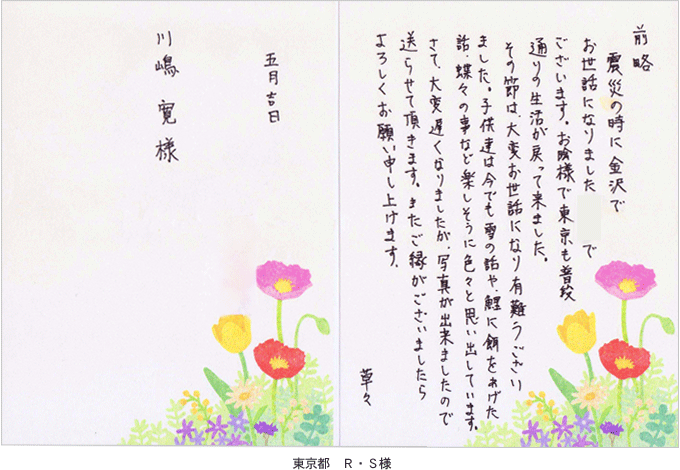 前略
震災の時に金沢で
お世話になりました　　で
ございます。お陰様で東京も普段
通りの生活が戻って来ました。
その節は、大変お世話になり有難うござい
ました。子供達は今でも雪の話や、鯉に餌をあげた
話、蝶々の事など楽しそうに色々と思い出しています。
さて、大変遅くなりましたが、写真が出来ましたので
送らせて頂きます。またご縁がございましたら
よろしくお願い申し上げます。
草々
五月吉日
川嶋 寛 様
東京都　Ｒ・Ｓ様